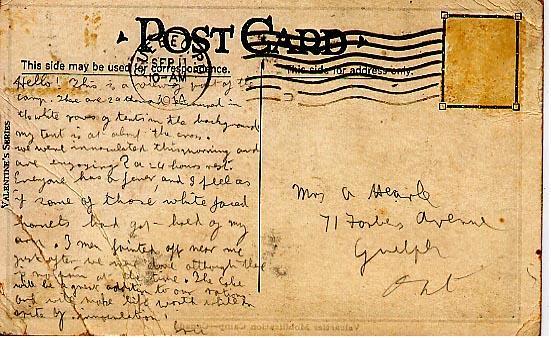 POST CARD
This side may be used for correspondence.
This side for address only.
SEP 11
10-AM
1914
VALENTINE'S SERIES
Hello! This is a view of part of the
camp. There are in
the white rows of tents in the background
my tent is at about the cross.
we were innoculated this morning and
are enjoying? a 24 hours rest.
Everyone has a fever, and I feel as
if some of those white faced
hornets had got hold of my
arm. 3 men fainted off near me
just after we were done although there
is no pain at the time. The cake
will be a great addition to our
and will make life worth while in
spite of innoculation!
Mrs A Hearle
71 Forbes Avenue
Guelph
Ont
Valcartier Mobilization Camp